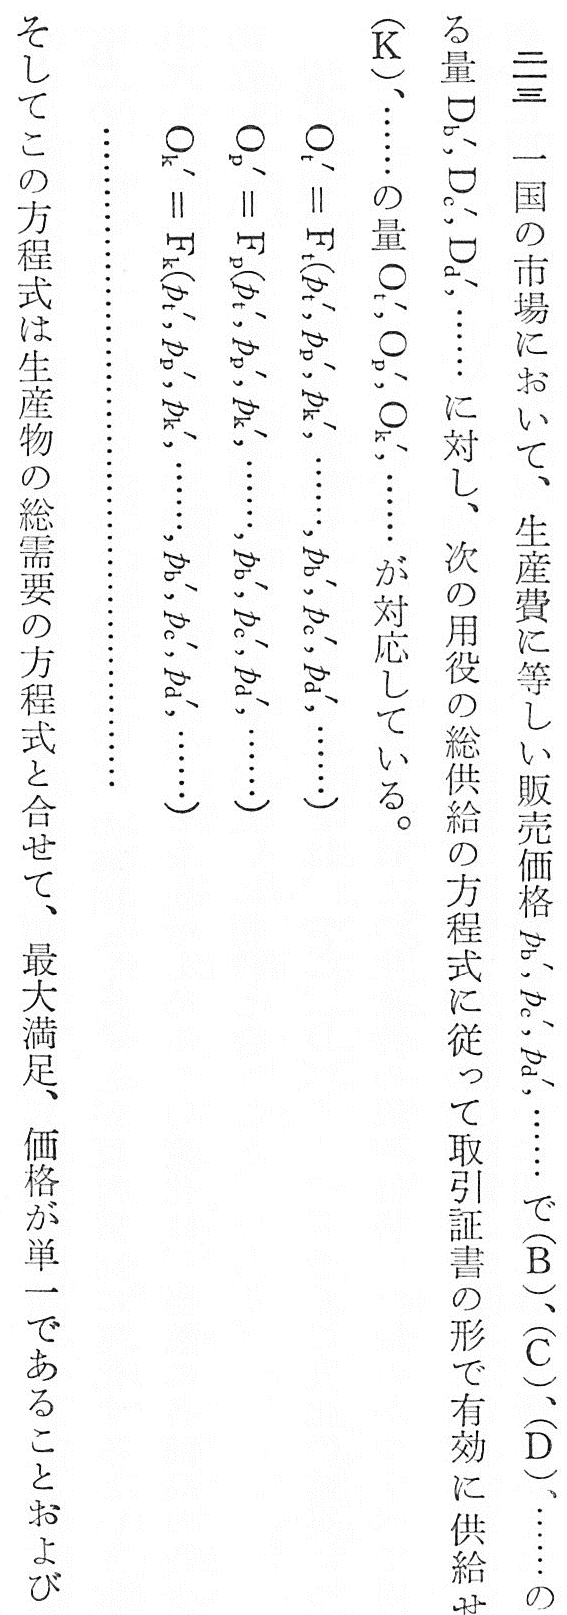 二一三　一国の市場において、生産費に等しい販売価格 p_b′, p_c′, p_d′, …… で(B)、(C)、(D)、……の
る量 D_b′, D_c′, D_d′, …… に対し、次の用役の総供給の方程式に従って取引証書の形で有効に供給せ
(K)、……の量 O_t′, O_p′, O_k′, …… が対応している。
O_t′ = F_t(p_t′, p_p′, p_k′, ……, p_b′, p_c′, p_d′, ……)
O_p′ = F_p(p_t′, p_p′, p_k′, ……, p_b′, p_c′, p_d′, ……)
O_k′ = F_k(p_t′, p_p′, p_k′, ……, p_b′, p_c′, p_d′, ……)
………………………………………………
そしてこの方程式は生産物の総需要の方程式と合せて、最大満足、価格が単一であることおよび